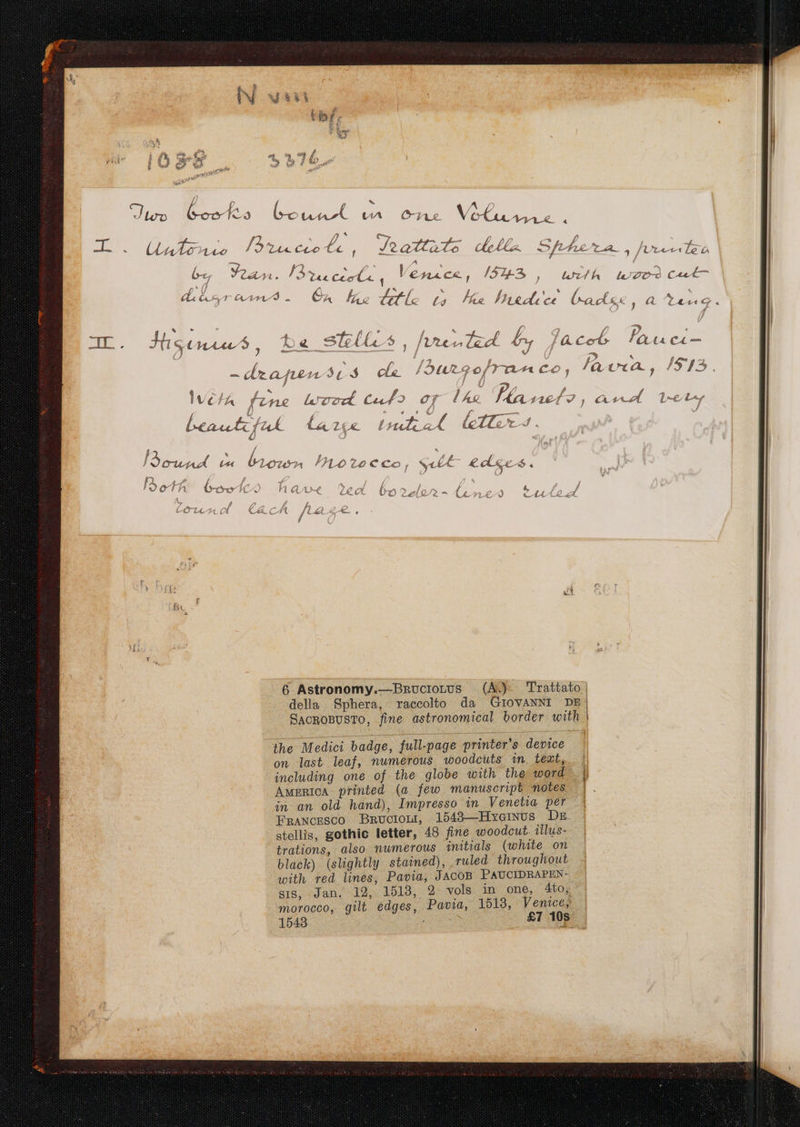 1038 3376
Two books bound in one Volume.
I. Antonio Bruccioli, Trattato della Sphera, printed
by Fran. Bruccioli, Venice, 1543, with wood cut
diagrams. On the title is the Medici badge, a ring.
II. Higinius, De Stellis, printed by Jacob Pauci-
-drapensis de Burgofranco, Pavia, 1513.
With fine wood cuts of the Planets, and very
beautiful large initial letters.
Bound in brown Morocco, gilt edges.
Both books have red border-lines ruled
round each page.
6 Astronomy.—BRUCIOLUS (A.) Trattato
della Sphera, raccolto da GIOVANNI DE
SACROBUSTO, fine astronomical border with
the Medici badge, full-page printer's device
on last leaf, numerous woodcuts in text,
including one of the globe with the word
AMERICA printed (a few manuscript notes
in an old hand), Impresso in Venetia per
FRANCESCO BRUCIOLI, 1543—HYGINUS DE
stellis, gothic letter, 48 fine woodcut illus-
trations, also numerous initials (white on
black) (slightly stained), ruled throughout
with red lines, Pavia, JACOB PAUCIDRAPEN-
SIS, Jan. 12, 1513, 2 vols in one, 4to,
morocco, gilt edges, Pavia, 1513, Venice,
1543 £7 10s